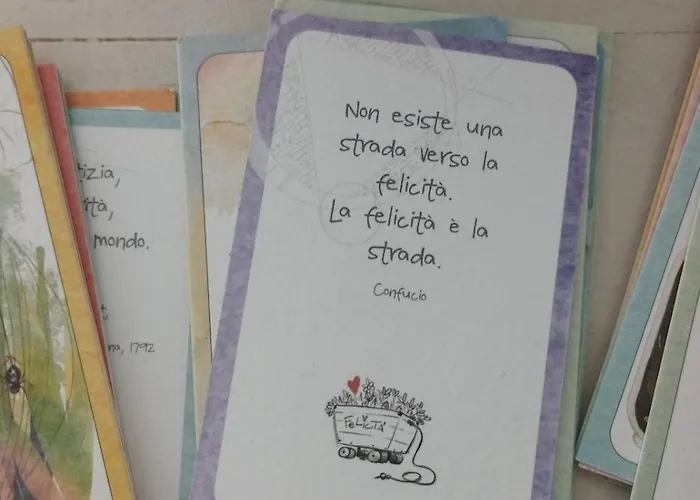 Non esiste una
strada verso la
felicità.
La felicità è la
strada.
Confucio
FELICITÀ
mondo.
1792